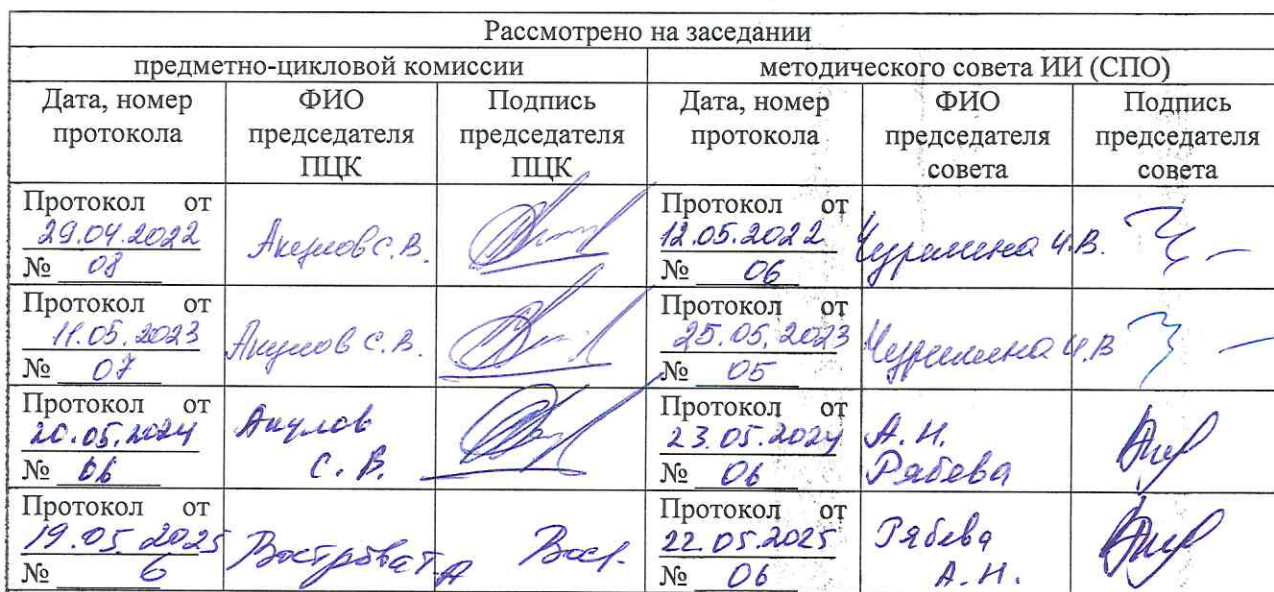 Рассмотрено на заседании
предметно-цикловой комиссии методического совета ИИ (СПО)
Дата, номер протокола ФИО председателя ПЦК Подпись председателя ПЦК Дата, номер протокола ФИО председателя совета Подпись председателя совета
Протокол от
29.04.2022
№ 08
Акулов С.В.
Протокол от
12.05.2022
№ 06
Чурилина И.В.
Протокол от
11.05.2023
№ 07
Акулов С.В.
Протокол от
25.05.2023
№ 05
Чурилина И.В
Протокол от
20.05.2024
№ 06
Акулов
С.В.
Протокол от
23.05.2024
№ 06
А.Н.
Рябева
Протокол от
19.05.2025
№ 6
Вострова Т.А
Протокол от
22.05.2025
№ 06
Рябева
А.Н.